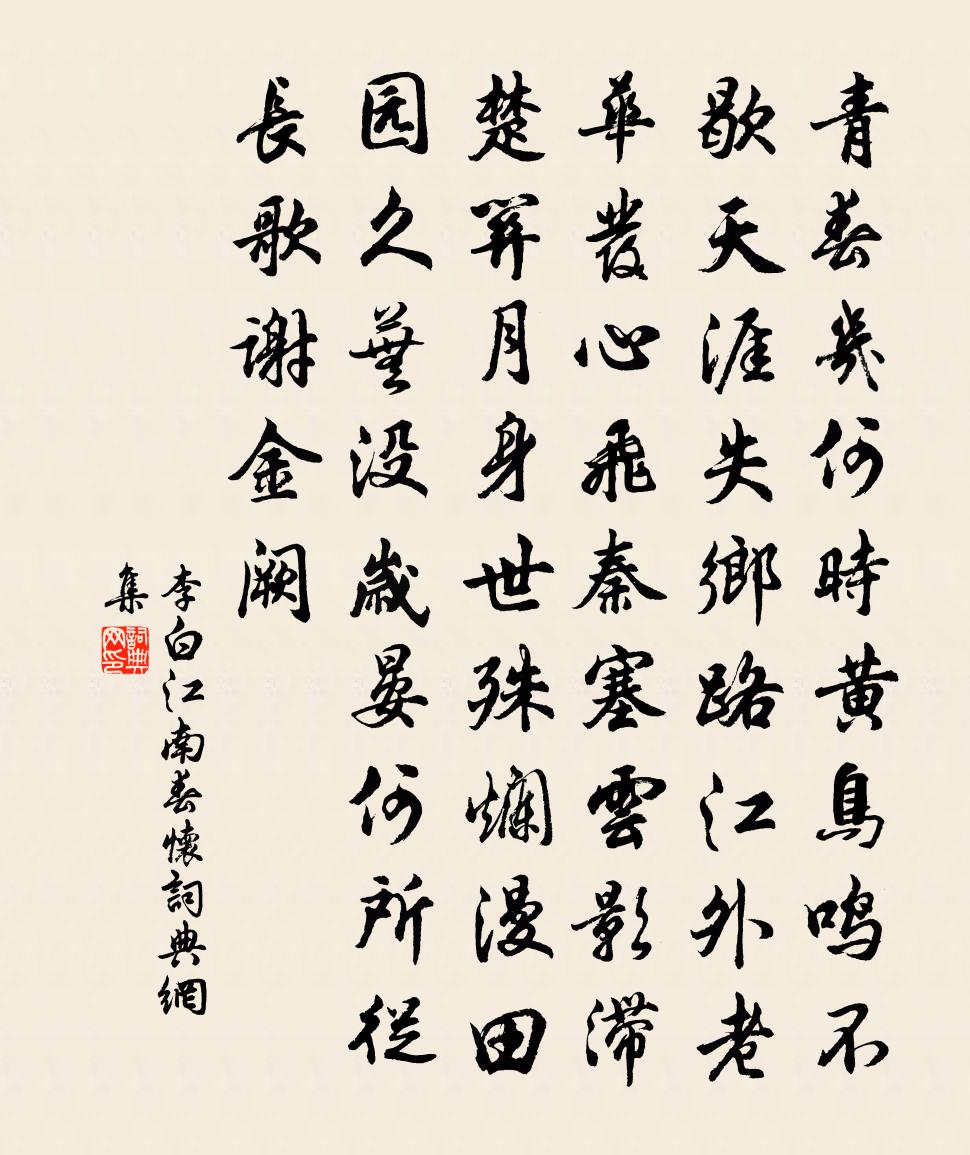 青春幾何時黄鳥鳴不
歇天涯失鄉路江外老
華發心飛秦塞雲影滯
楚関月身世殊爛漫田
园久蕪没歲晏何所從
長歌謝金闕
李白江南春懷詞典網
集
詞典
网印